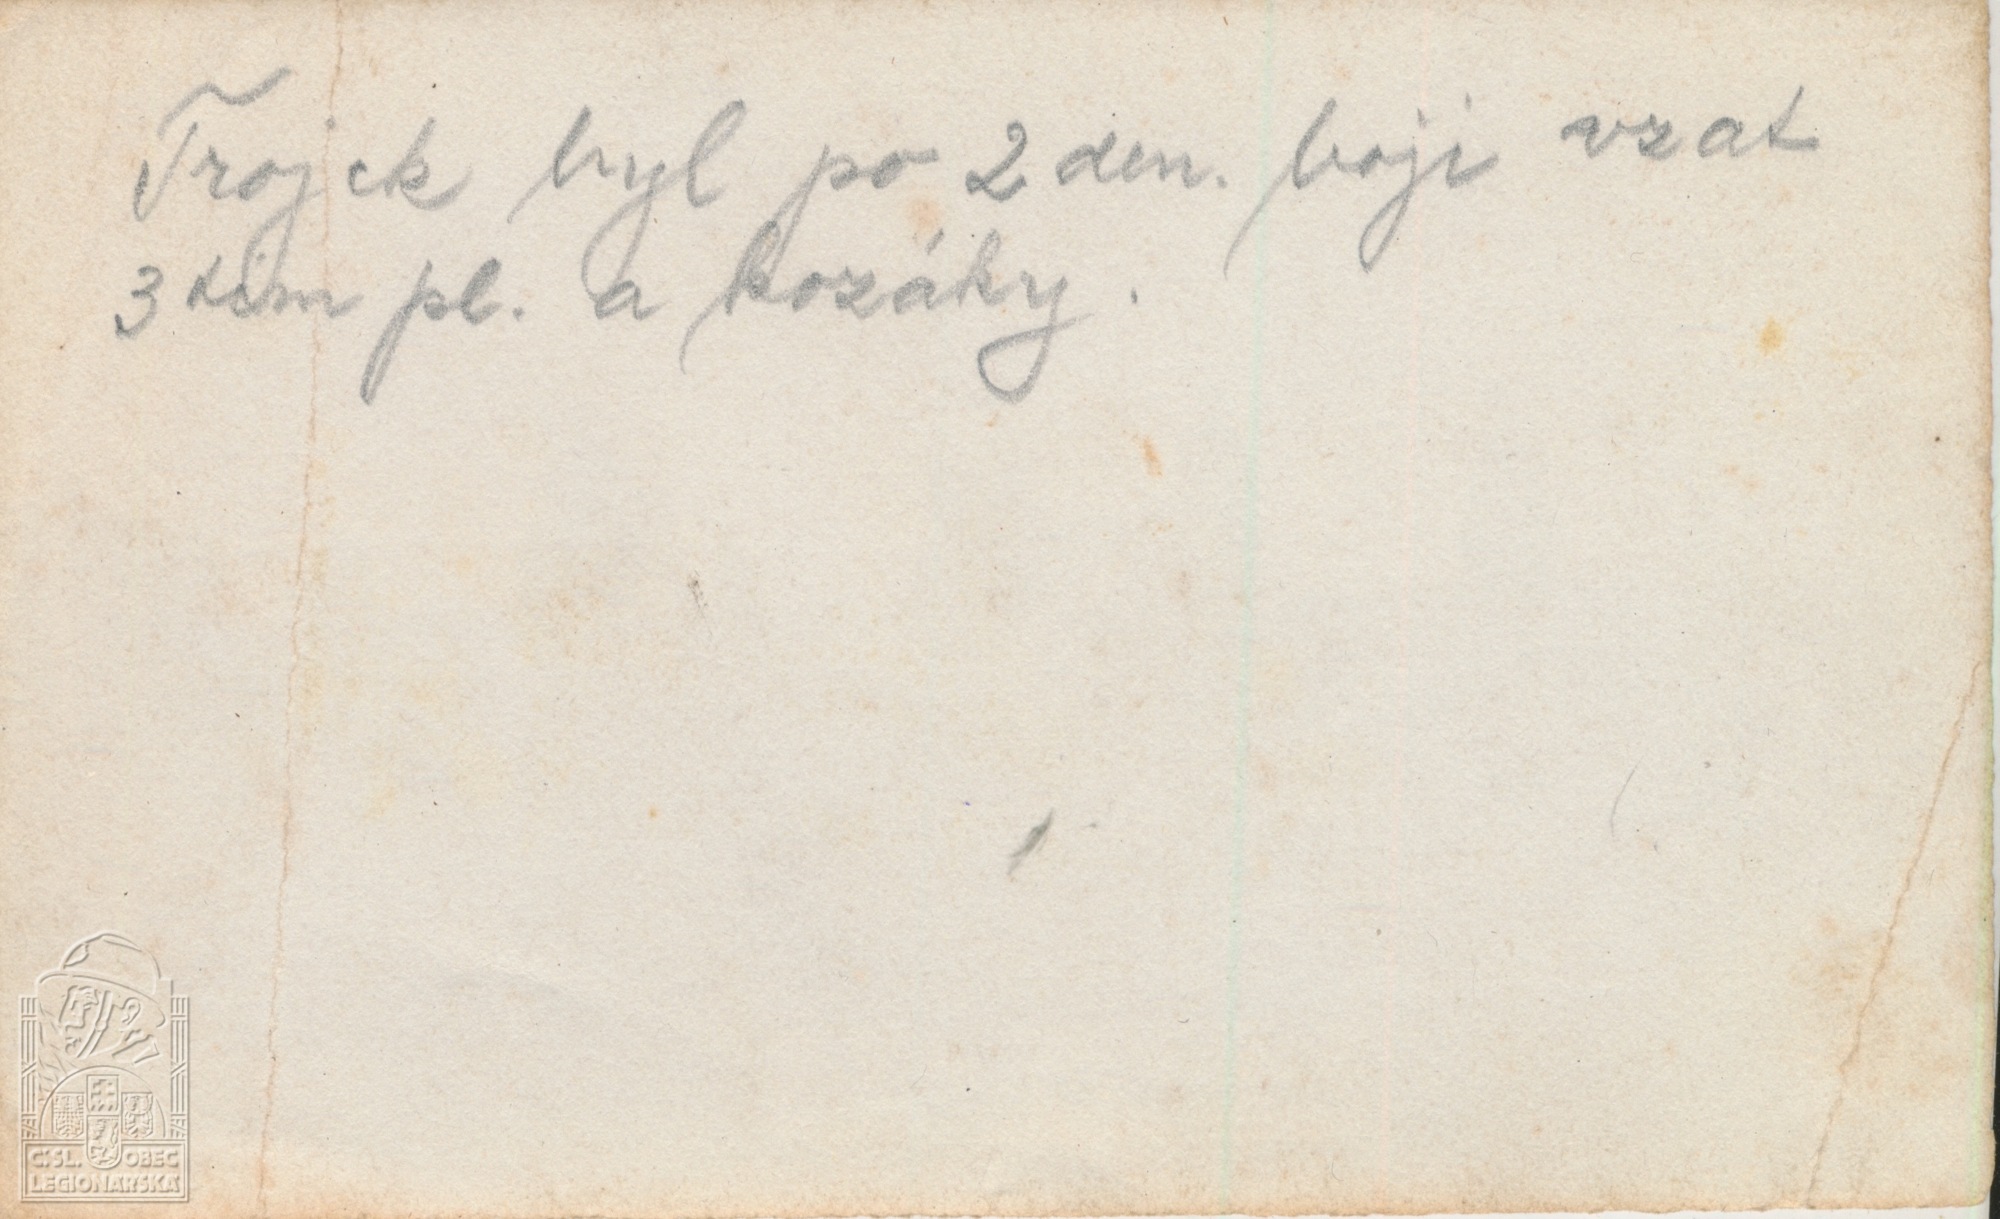 Trojck byl po 2 den. boji vzat
3 tím pl. a kozáky.
Č.SL. OBEC
LEGIONÁŘSKÁ